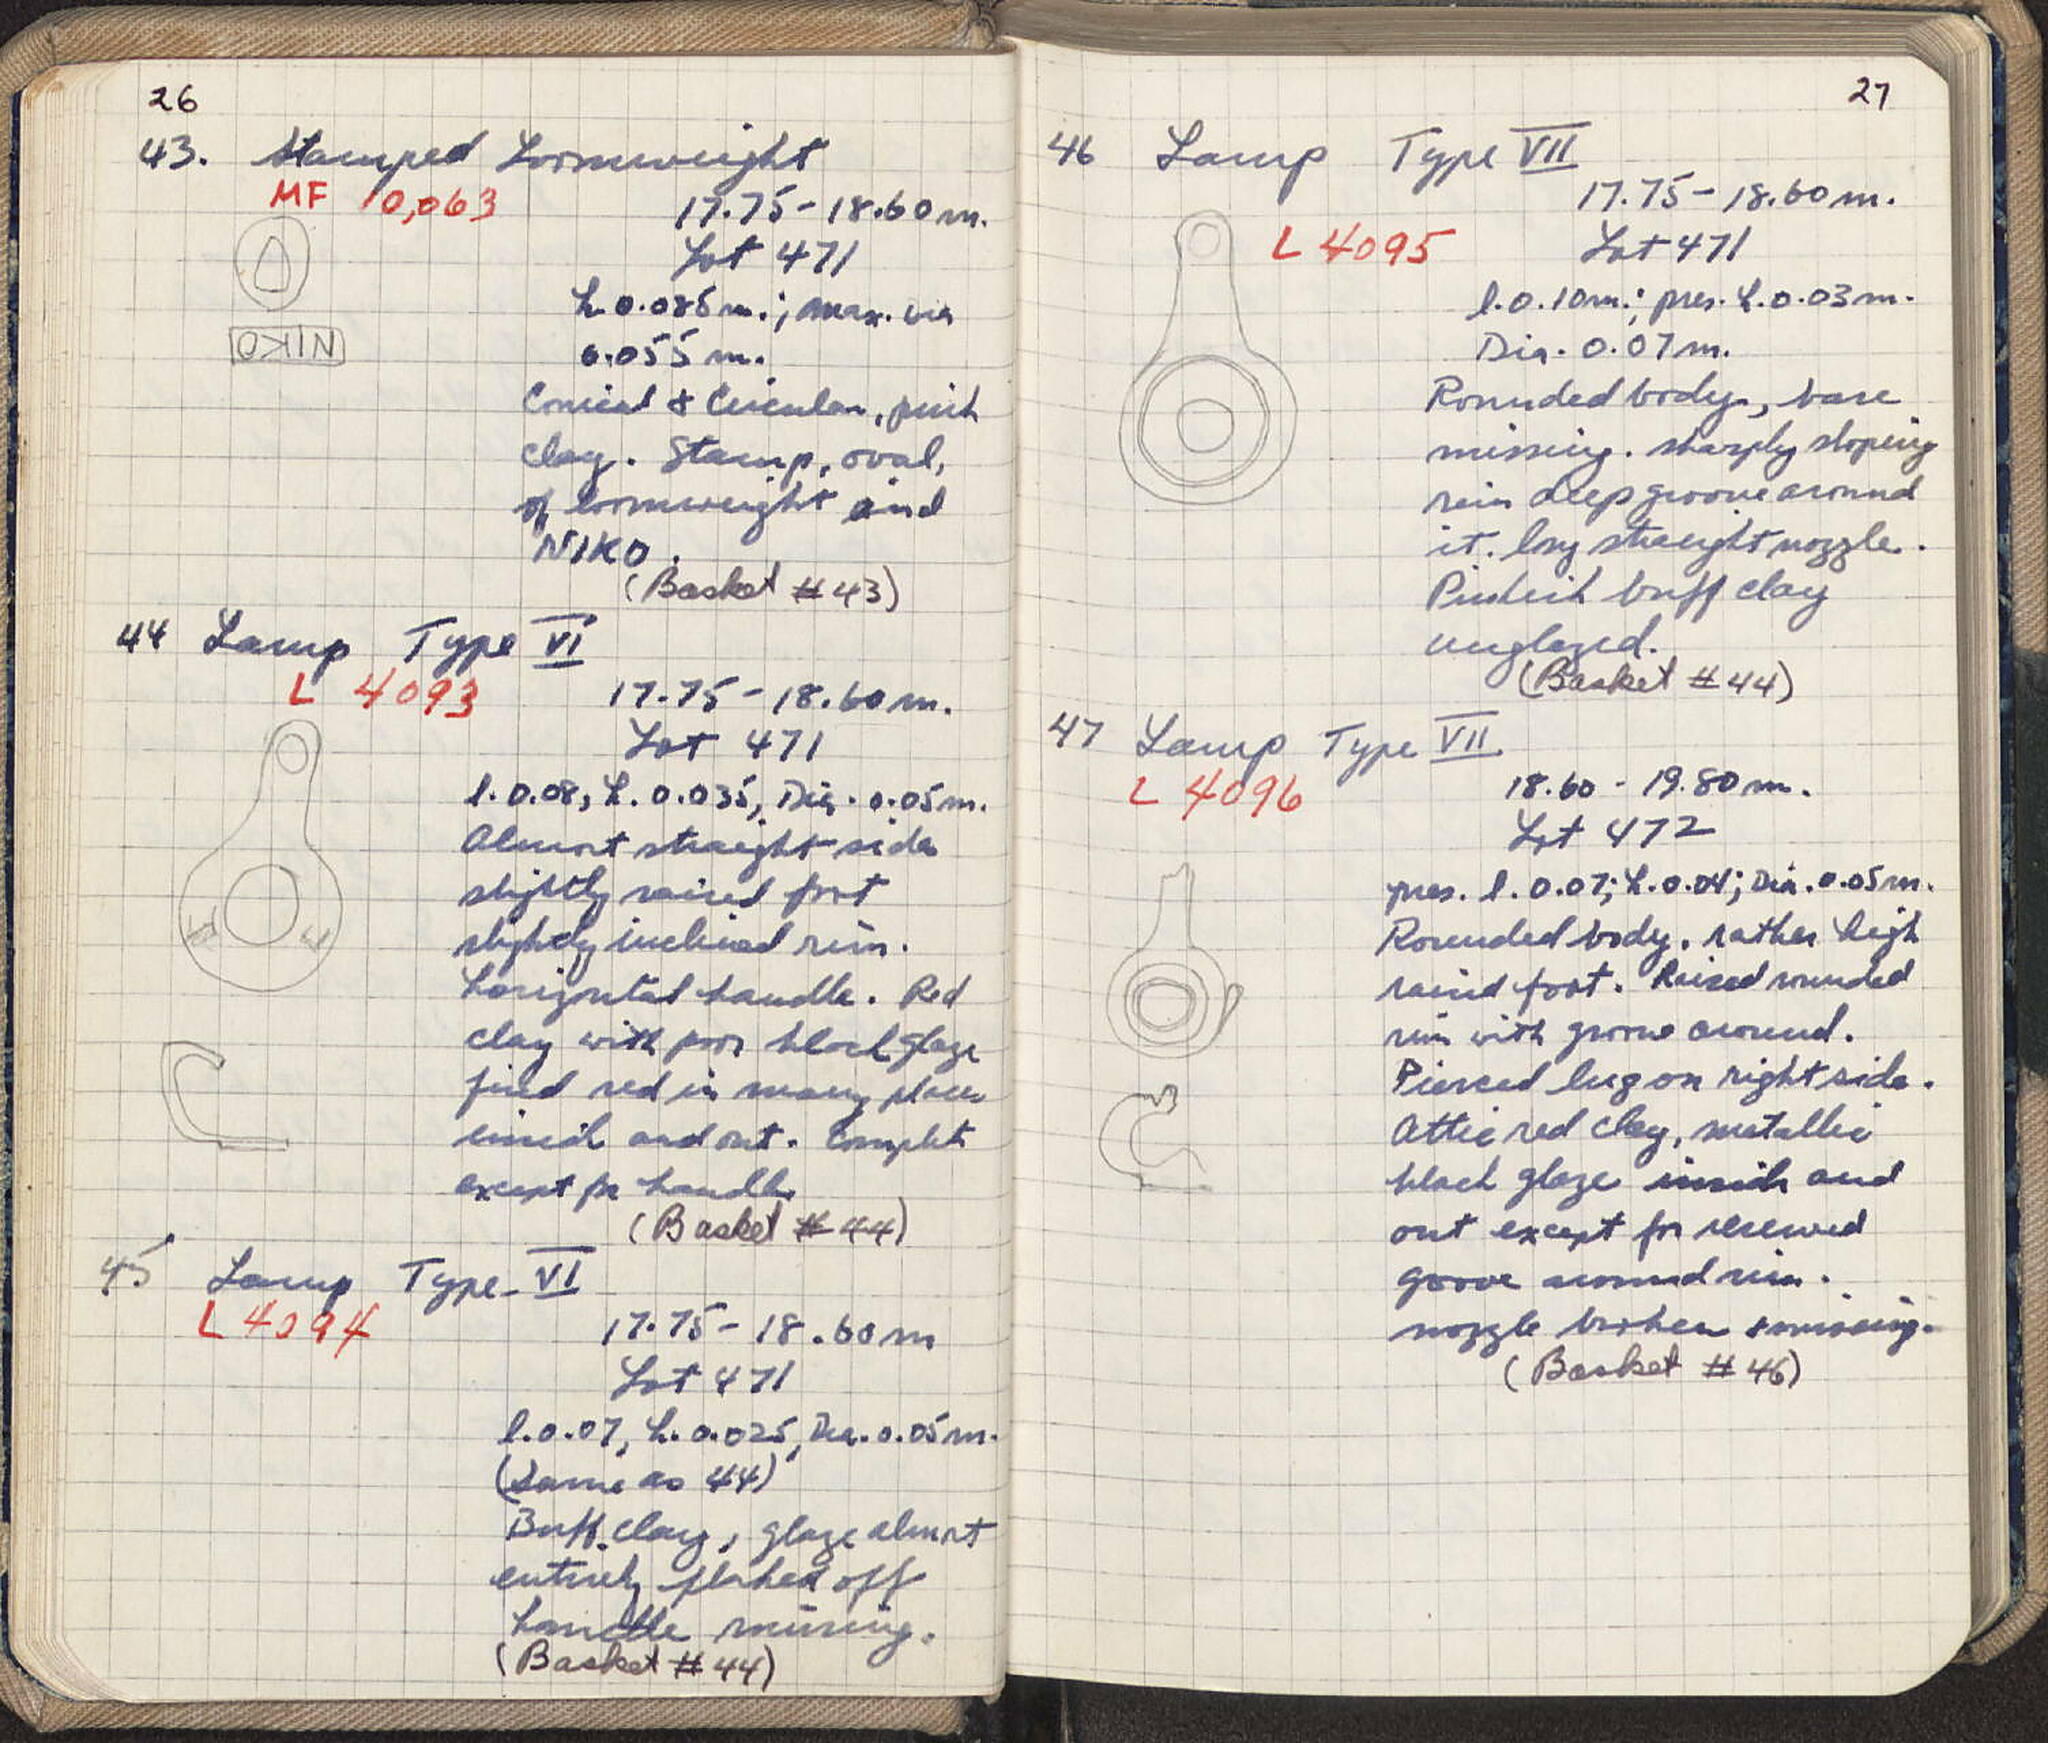 26
43. Stamped Loomweight
MF 10,063
17.75-18.60 m.
Lot 471
h. 0.085 m.; max. dia
0.055 m.
NIKO
Conical & Circular, pink
clay. Stamp, oval,
of loomweight and
NIKO.
(Basket #43)
44 Lamp Type VI
L 4093
17.75-18.60 m.
Lot 471
l. 0.08, h. 0.035, Dia. 0.05 m.
Almost straight side
slightly raised foot
slightly inclined rim.
horizontal handle. Red
clay with poor black glaze
fired red in many places
inside and out. Complete
except for handle
(Basket #44)
45 Lamp Type VI
L 4094
17.75-18.60 m
Lot 471
l. 0.07, h. 0.025, Dia. 0.05 m.
(Same as 44)
Buff clay, glaze almost
entirely flaked off
handle missing.
(Basket #44)
27
46 Lamp Type VII
17.75-18.60 m.
L 4095
Lot 471
l. 0.10 m.; pres. h. 0.03 m.
Dia. 0.07 m.
Rounded body, base
missing. sharply sloping
rim deep groove around
it. long straight nozzle.
Pinkish buff clay
unglazed.
(Basket #44)
47 Lamp Type VII
L 4096
18.60-19.80 m.
Lot 472
pres. l. 0.07; h. 0.04; Dia. 0.05 m.
Rounded body, rather high
raised foot. Raised rounded
rim with groove around.
Pierced lug on right side.
Attic red clay, metallic
black glaze inside and
out except for reserved
groove around rim.
nozzle broken & missing.
(Basket #46)